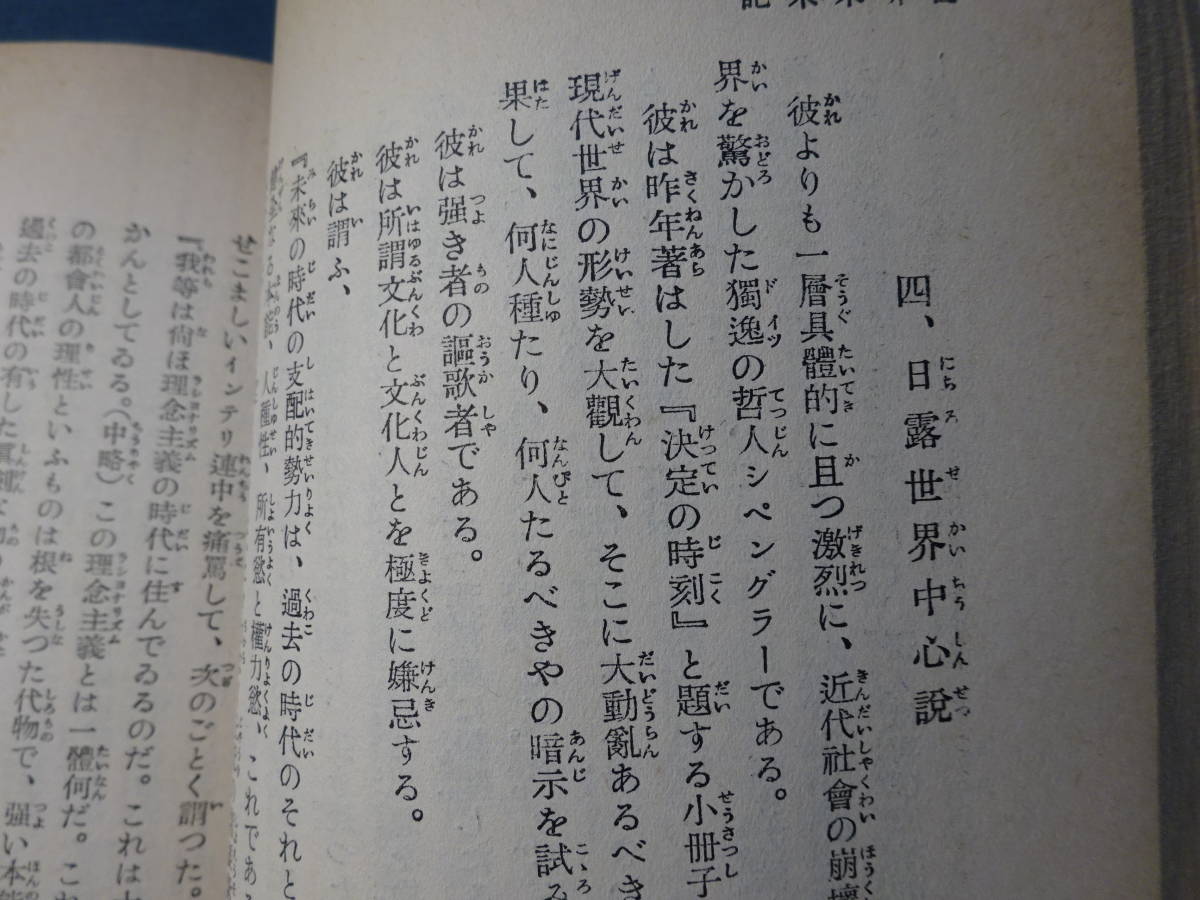 四、日露世界中心說
彼よりも一層具體的に且つ激烈に、近代社會の崩壞
界を驚かした獨逸の哲人シペングラーである。
彼は昨年著はした『決定の時刻』と題する小冊子
現代世界の形勢を大觀して、そこに大動亂あるべき
果して、何人種たり、何人たるべきやの暗示を試み
彼は强き者の謳歌者である。
彼は所謂文化と文化人とを極度に嫌忌する。
彼は謂ふ、
『未來の時代の支配的勢力は、過去の時代のそれと
人種性、所有慾と權力慾、これである
せこましいインテリ連中を痛罵して、次のごとく謂つた。
『我等は尙ほ理念主義の時代に住んでゐるのだ。これは
かんとしてゐる。(中略)この理念主義とは一體何だ。
の都會人の理性といふものは根を失つた代物で、强い本能
過去の時代の有した